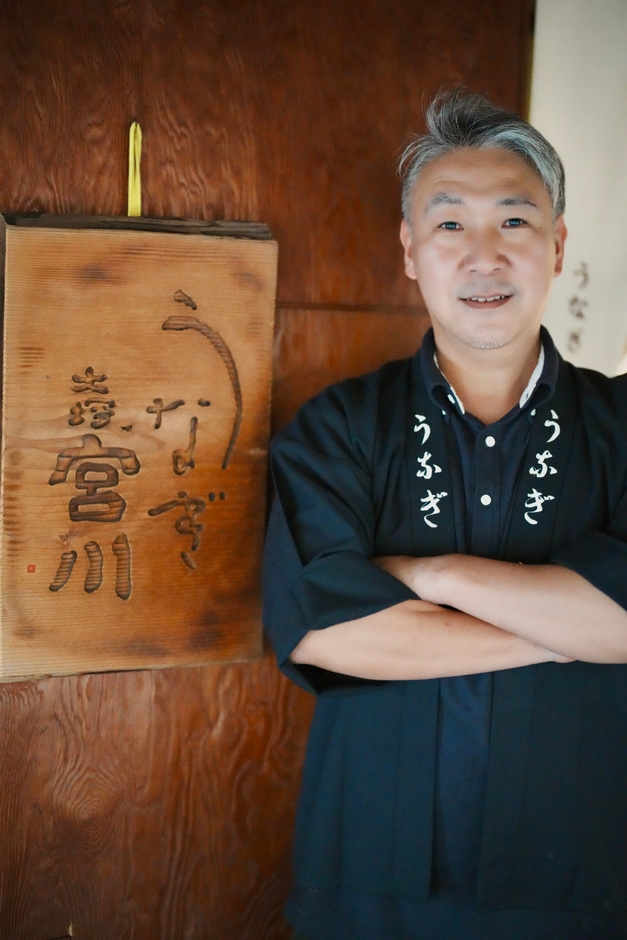 うなぎ
赤塚宮川
うなぎ
うなぎ
うなぎ